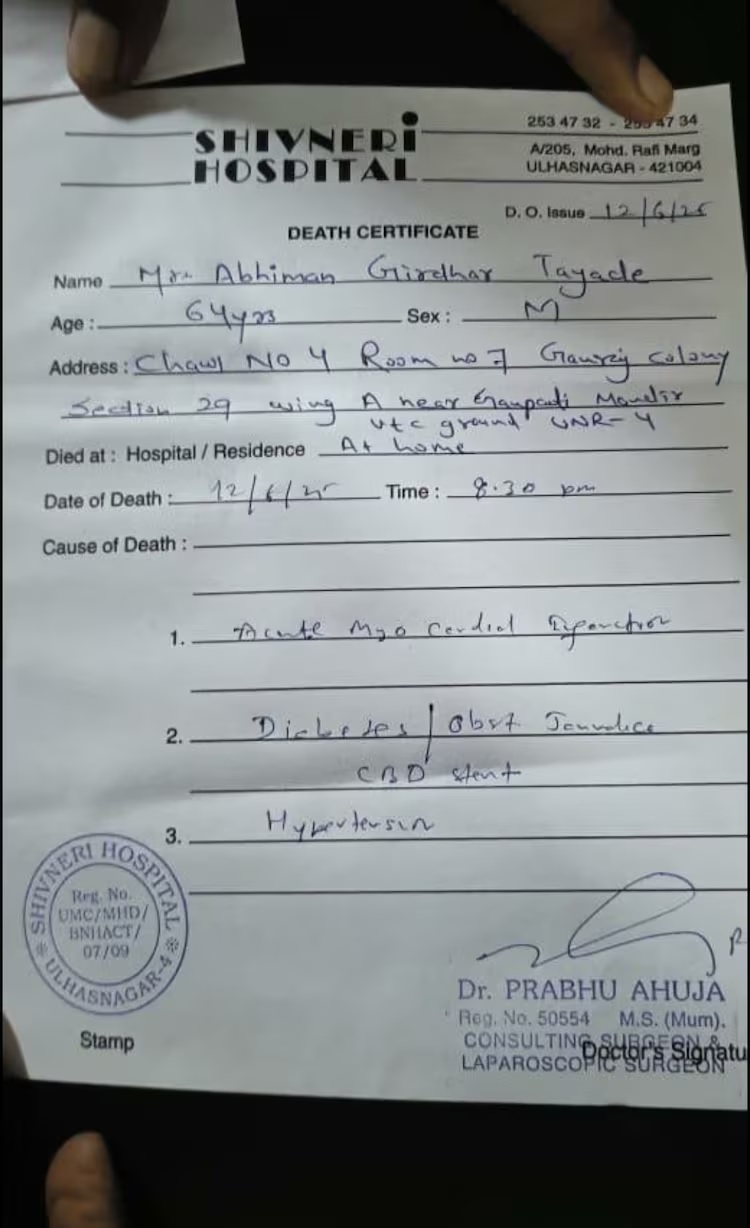 SHIVNERI
HOSPITAL
253 47 32 - 253 47 34
A/205, Mohd. Rafi Marg
ULHASNAGAR - 421004
D. O. Issue 12/6/25
DEATH CERTIFICATE
Name Mr. Abhiman Girdhar Tayade
Age : 64yrs Sex : M
Address : Chawl NO 4 Room no 7 colony
Section 29 wing A near Ganpati Mandir
vtc ground UNR-4
Died at : Hospital / Residence At home
Date of Death : 12/6/25 Time : 8.30 pm
Cause of Death :
1. Acute Myo cardial Infarction
2. Diabetes / Obst Jaundice
CBD stent
3. Hypertension
SHIVNERI HOSPITAL
ULHASNAGAR-4
Reg. No.
UMC/MHD/
BNHACT/
07/09
Stamp
Dr. PRABHU AHUJA
Reg. No. 50554 M.S. (Mum).
CONSULTING SURGEON &
LAPAROSCOPIC SURGEON
Doctor's Signatu